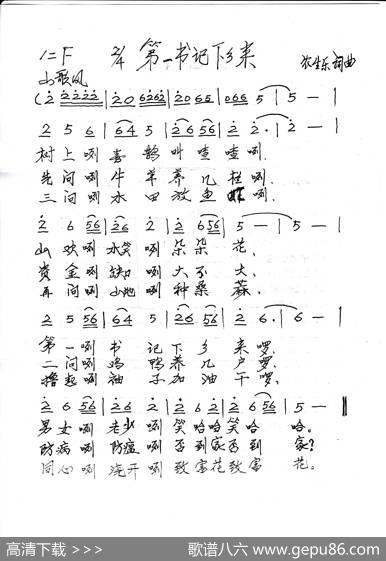 1=F 2/4 第一书记下乡来 农生乐词曲
山歌风
(2 2222|20 6262|20 056|066 5|5 —|
2 5 6|64 5|26 56|2 2.|2 —|
树上咧喜鹊叫喳喳咧.
先问咧牛羊养几栏咧.
三问咧水田放鱼咧.
2 6 56|26 2|2 6 56|5 —|5 —|
山欢咧水笑咧朵朵花,
资金咧缺口咧大不大,
再问咧山地咧种桑蔴.
2 5 56|64 5|26 56|2 6.|6 —|
第一咧书记下乡来啰,
二问咧鸡鸭养几户啰,
撸起咧袖子加油干啰,
2 6 56|26 2|26 26|2 6 56|5 —‖
男女咧老少咧笑哈哈笑哈哈。
防病咧防瘟咧否到家否到家?
同心咧浇开咧致富花致富花。
高清下载 >>>
歌谱八六 www.gepu86.com